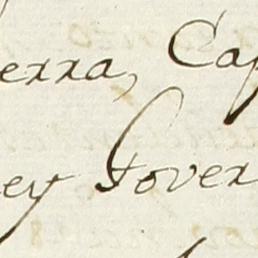 erra, Cap
ey Gover